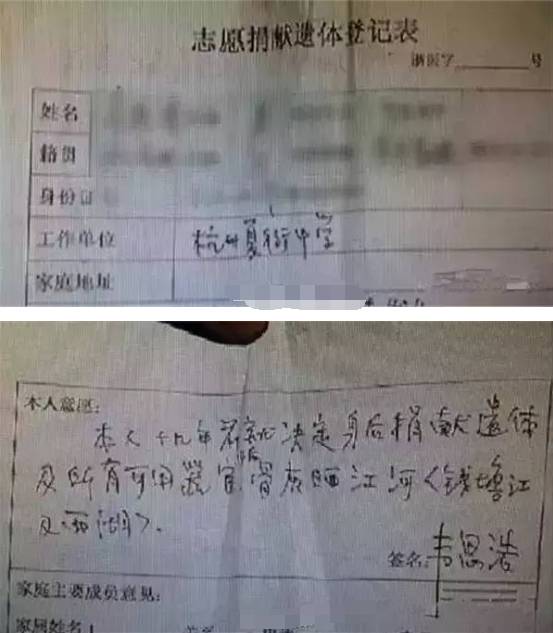 志愿捐献遗体登记表
浙医字 号
姓名
籍贯
身份
工作单位 杭州夏衍中学
家庭地址
本人意愿:
本人 决定身后捐献遗体
及所有可用器官 骨灰晒江河〈钱塘江
及西湖〉.
签名: 韦思浩
家庭主要成员意见:
家属姓名